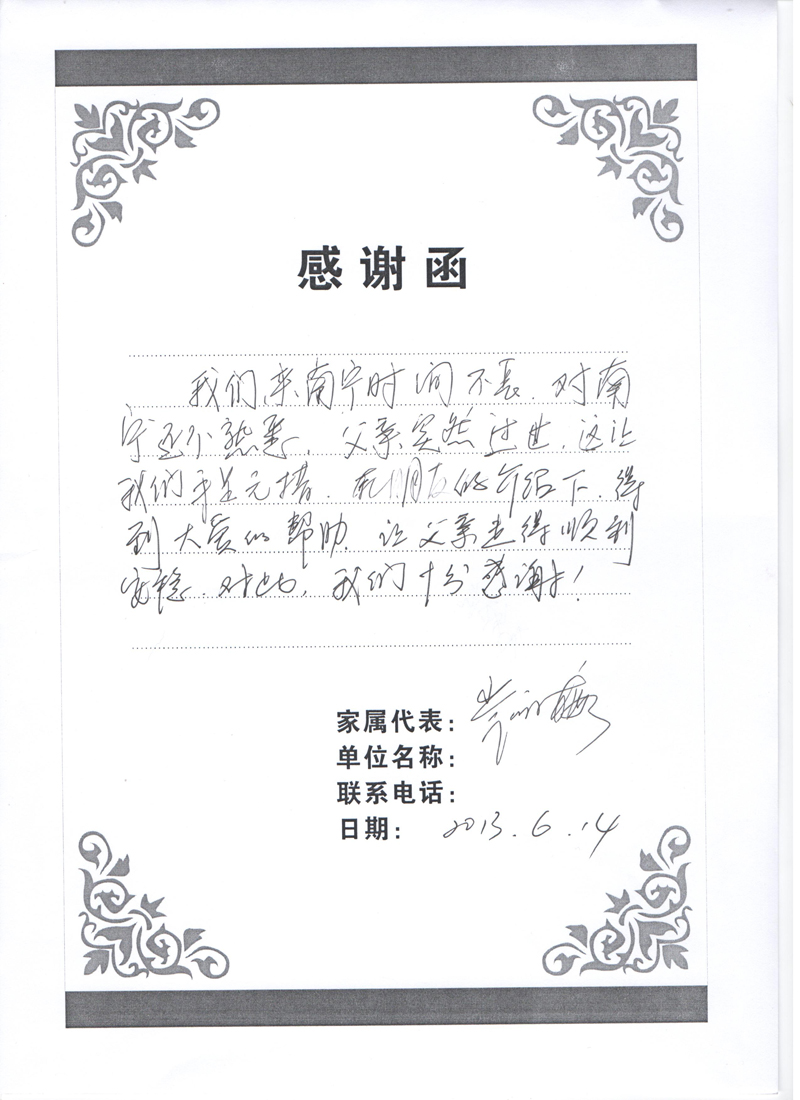 感谢函
我们来南宁时间不长，对南
宁还不熟悉，父亲突然过世，这让
我们手足无措，在朋友的介绍下，得
到大爱的帮助，让父亲走得顺利
安稳，对此，我们十分感谢！
家属代表：
单位名称：
联系电话：
日期： 2013.6.14